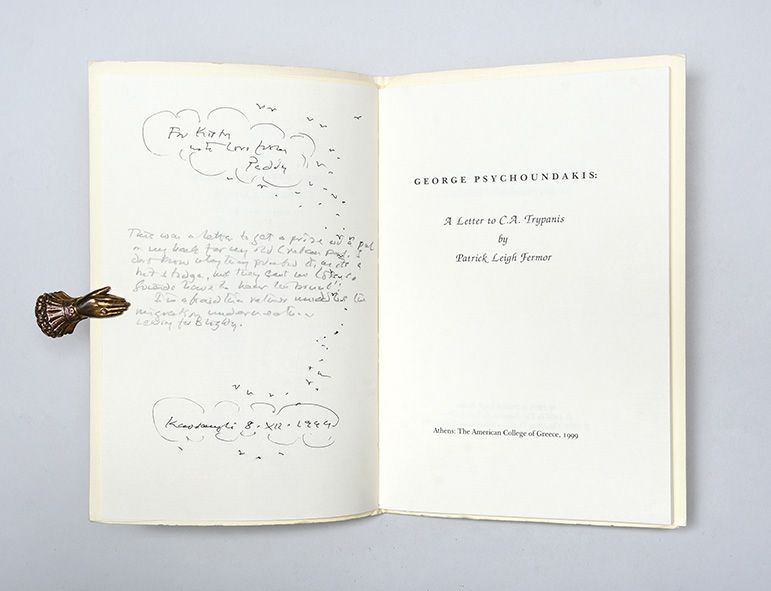 For Kitty
with love from
Paddy
This was a letter to get a prize and a pat
on my back for my old Cretan pal. I
don't know why they printed it, as it's a
but they sent me
to have to
I'm afraid the
migration under
leaving for Blighty.
Kardamyli 8 · XII · 1999
GEORGE PSYCHOUNDAKIS:
A Letter to C.A. Trypanis
by
Patrick Leigh Fermor
Athens: The American College of Greece, 1999